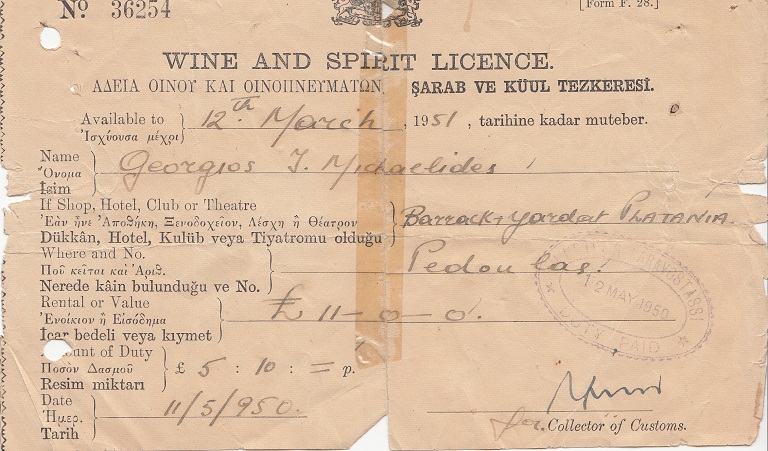 No. 36254
[Form F. 28.]
WINE AND SPIRIT LICENCE.
ΑΔΕΙΑ ΟΙΝΟΥ ΚΑΙ ΟΙΝΟΠΝΕΥΜΑΤΩΝ ŞARAB VE KÜUL TEZKERESİ.
Available to 12th March, 1951, tarihine kadar muteber.
Ἰσχύουσα μέχρι
Name Georgios J. Michaelides
Ὄνομα
İsim
If Shop, Hotel, Club or Theatre
Ἐὰν ἦνε Ἀποθήκη, Ξενοδοχεῖον, Λέσχη ἢ Θέατρον Barrack yard at PLATANIA.
Dükkân, Hotel, Kulüb veya Tiyatromu olduğu
Where and No.
Ποῦ κεῖται καὶ Ἀριθ. Pedoulas.
Nerede kâin bulunduğu ve No.
Rental or Value
Ἐνοίκιον ἢ Εἰσόδημα £ 11-0-0.
İcar bedeli veya kıymet
Amount of Duty
Ποσὸν Δασμοῦ £ 5 : 10 : = p.
Resim miktarı
Date 11/5/950.
Ἡμερ.
Tarih
KARAVOSTASSI
12 MAY 1950
DUTY PAID
for Collector of Customs.